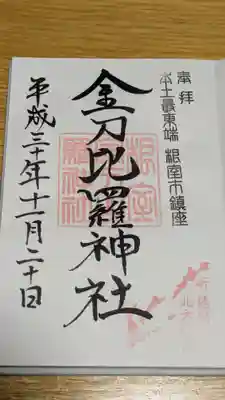 奉拝
本土最東端 根室市鎮座
金刀比羅神社
平成三十年十一月二十日